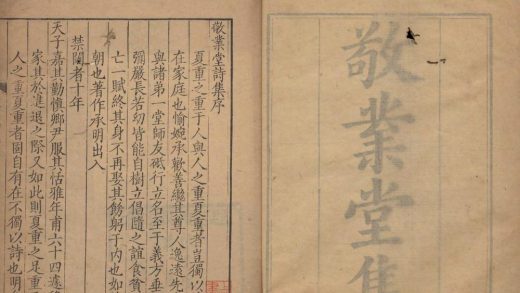 敬業堂集
敬業堂詩集序
夏重之重于人與人之重夏重者豈獨以
在家庭也愉婉承歡善繼其尊人逸遠先
與諸弟一堂師友砥行立名至于義方垂
彌嚴長若幼皆能自樹立倡隨之誼食貧
亡一賦終其身不再娶其飭躬于內也如
朝也著作承明出入
禁闥者十年
天子嘉其勤慎卿尹服其恬雅年甫六十四遂
家其於進退之際又如此則夏重之足重
人之重夏重者固自有在不獨以詩也明